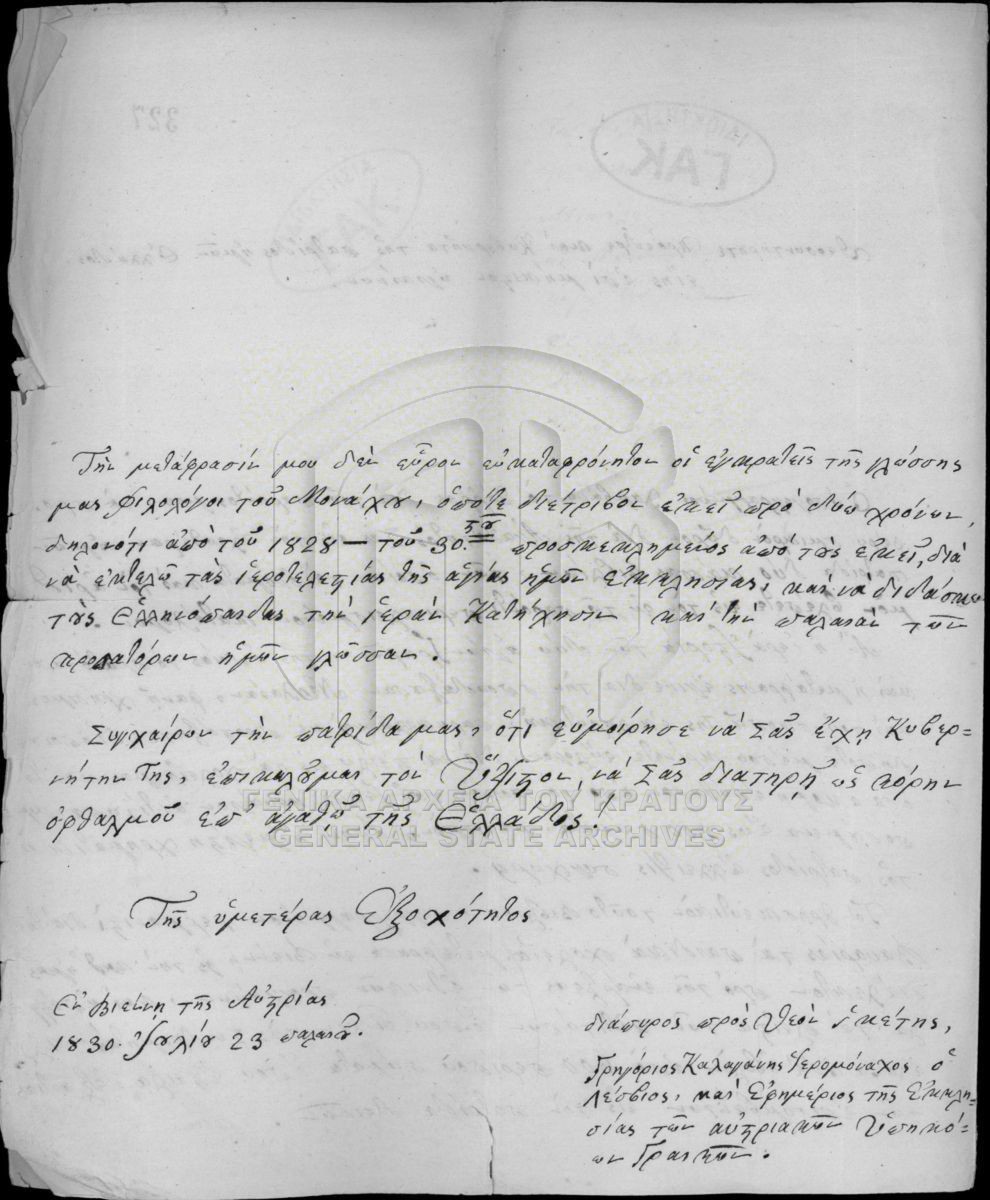 Τὴν μετάφρασίν μου δὲν εὗρον εὐκαταφρόνητον οἱ ἐγκρατεῖς τῆς γλώσσης
μας φιλολόγοι τοῦ Μονάχου, ὁπότε διέτριβον ἐκεῖ πρὸ δύω χρόνων,
δηλονότι ἀπὸ τοῦ 1828 — τοῦ 30.στου προσκεκλημένος ἀπὸ τοὺς ἐκεῖ, διὰ
νὰ ἐκτελῶ τὰς ἱεροτελεστίας τῆς ἁγίας ἡμῶν ἐκκλησίας, καὶ νὰ διδάσκω
τοὺς Ἑλληνόπαιδας τὴν ἱερὰν Κατήχησιν καὶ τὴν παλαιὰν τῶν
προπατόρων ἡμῶν γλῶσσαν.
Συγχαίρων τὴν πατρίδα μας, ὅτι εὐμοίρησε νὰ Σᾶς ἔχῃ Κυβερ=
νήτην Της, ἐπικαλοῦμαι τὸν Ὕψιστον, νὰ Σᾶς διατηρῇ ὡς κόρην
ὀφθαλμοῦ ἐπ' ἀγαθῷ τῆς Ἑλλάδος!
ΓΕΝΙΚΑ ΑΡΧΕΙΑ ΤΟΥ ΚΡΑΤΟΥΣ
GENERAL STATE ARCHIVES
Τῆς ὑμετέρας Ἐξοχότητος
Ἐν Βιέννῃ τῆς Αὐστρίας
1830. Ἰουλίου 23 παλαιοῦ.
διάπυρος πρὸς Θεὸν ἱκέτης,
Γρηγόριος Καλαγάνης Ἱερομόναχος ὁ
Λέσβιος, καὶ Ἐφημέριος τῆς Ἐκκλη=
σίας τῶν αὐστριακῶν Ὑπηκό=
ων Γραικῶν.